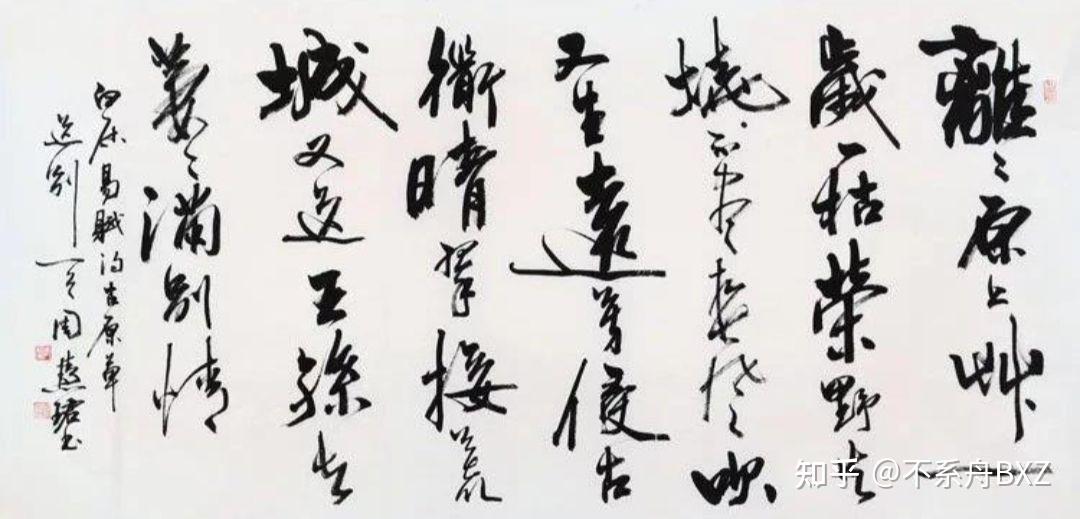 離〻原上艸一
歲一枯榮野火
燒不盡春風吹
又生遠芳侵古
衟晴翠接荒
城又送王孫去
萋〻滿別情
白居易賦得古原草
送別一 周慧珺书
知乎 @不系舟BXZ